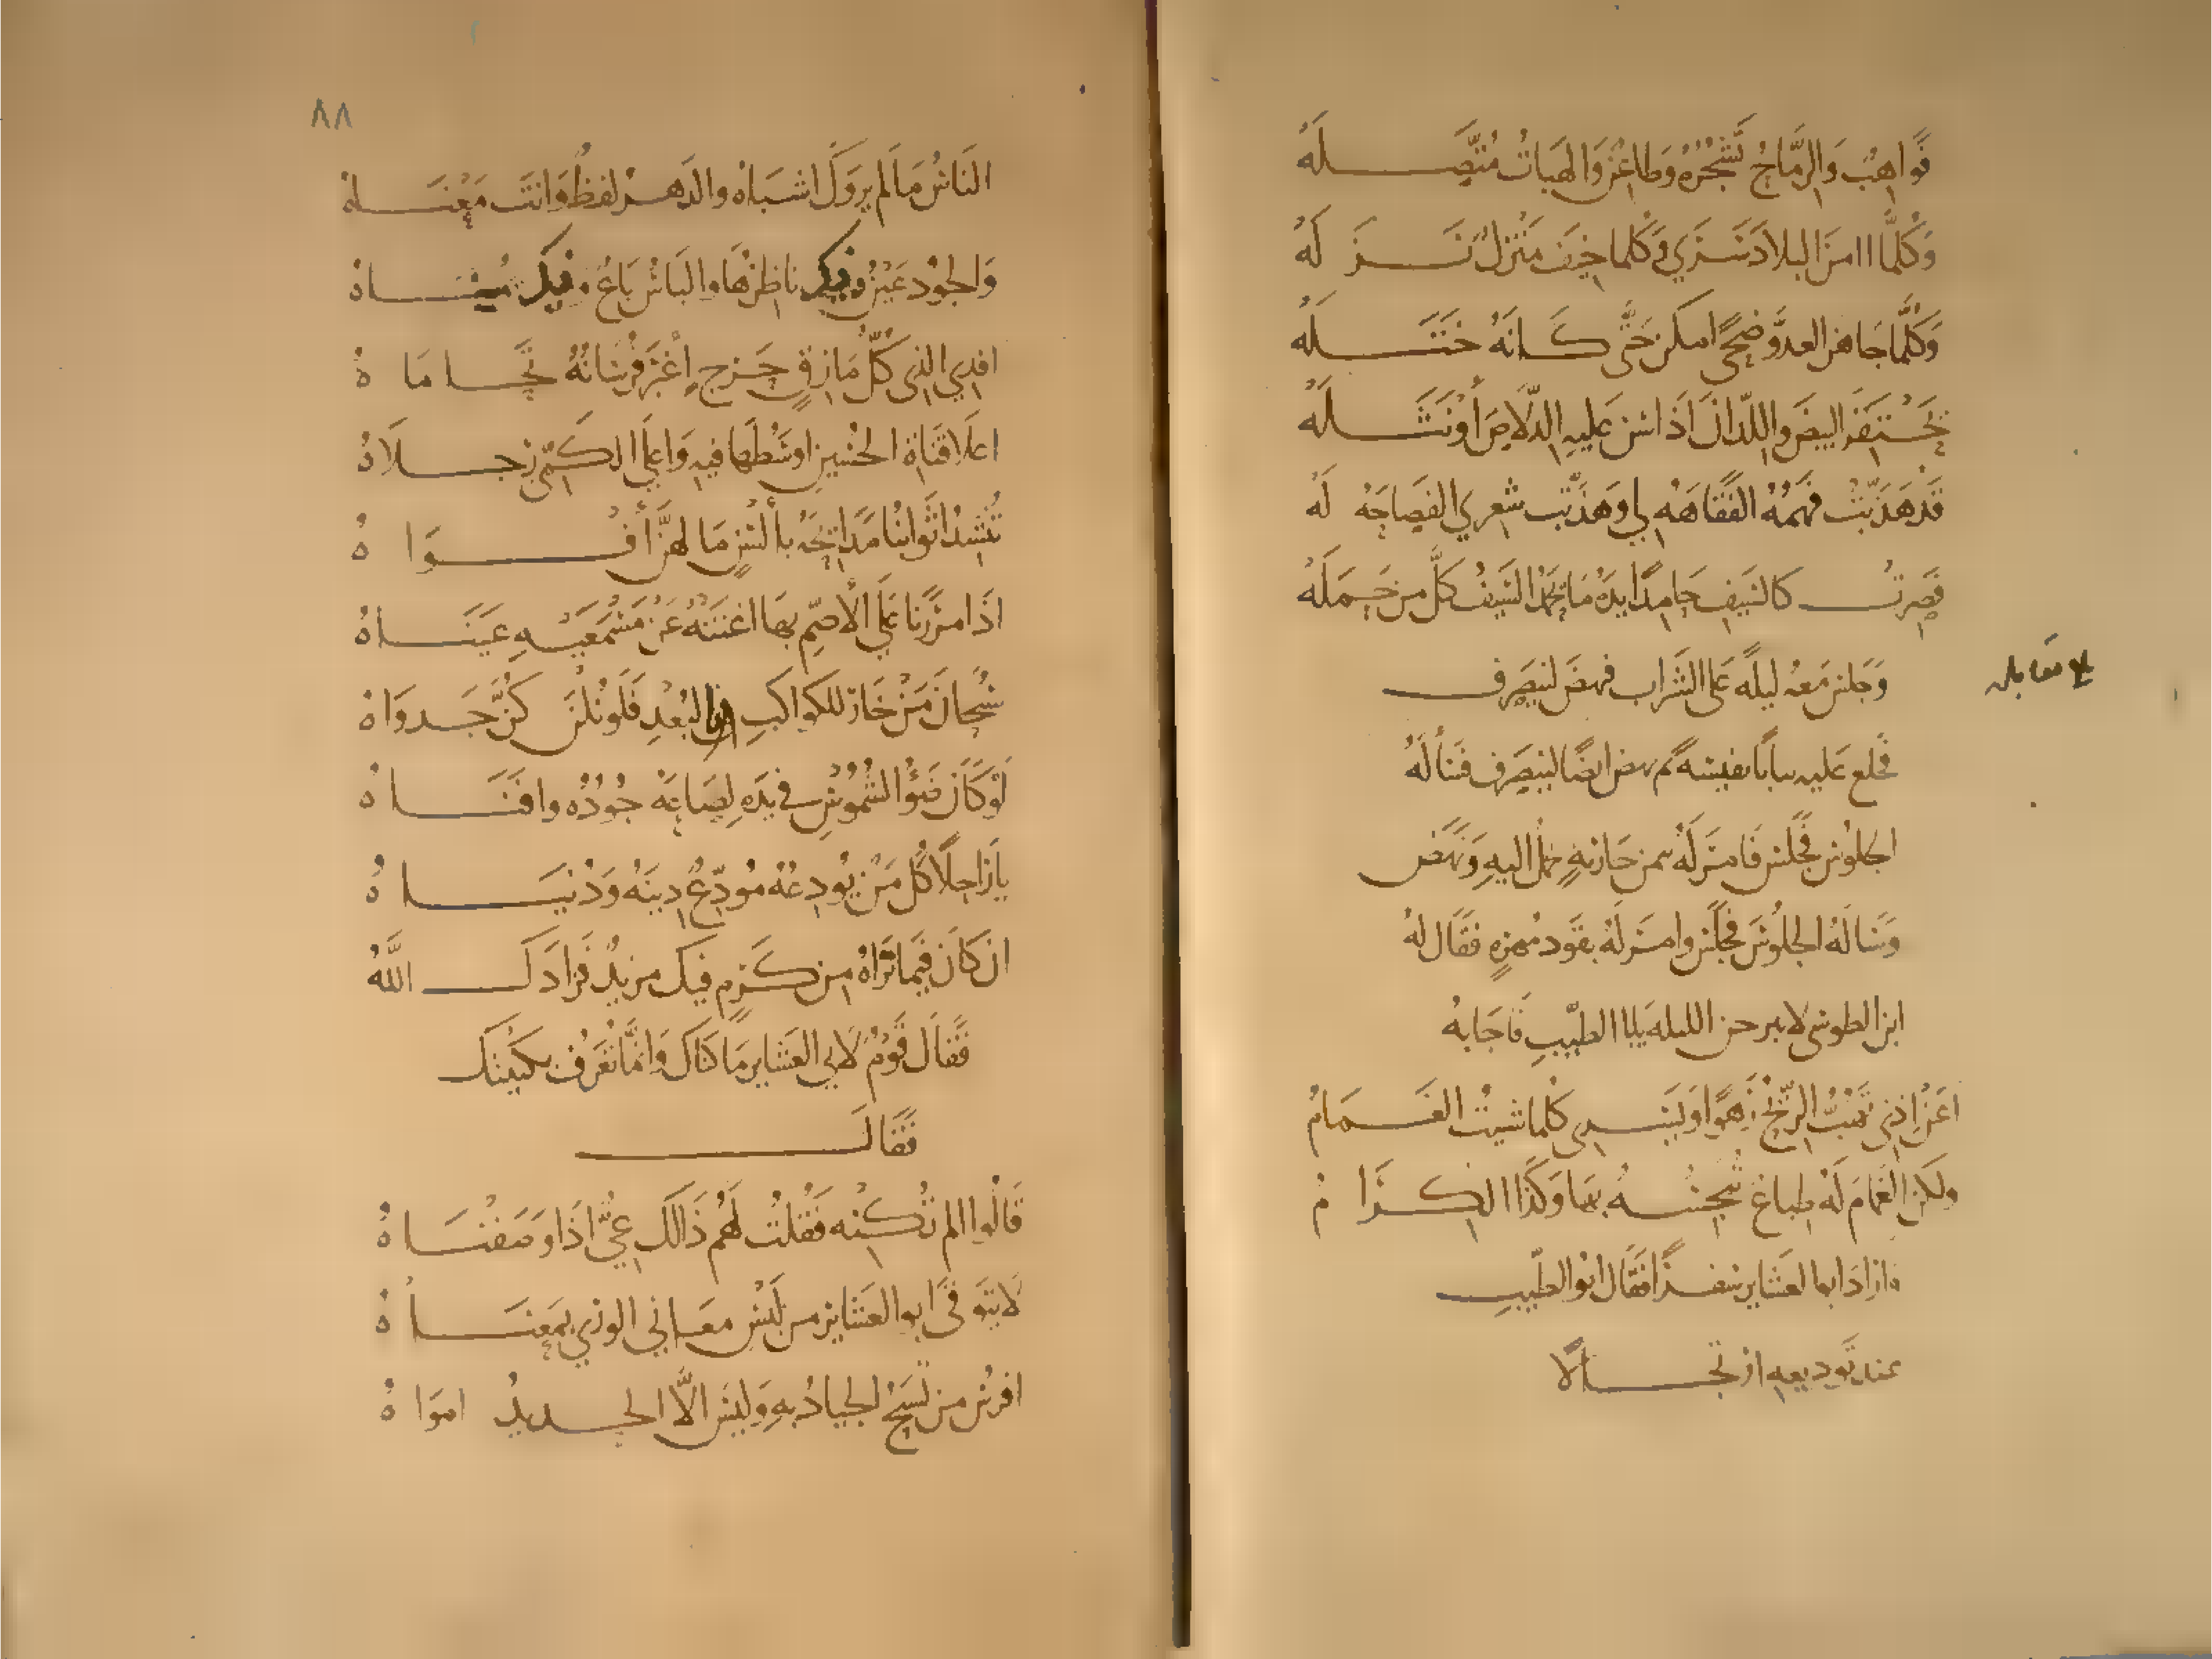 فَواهِبٌ وَالرِّمَاحُ تَشْجُرُهُ وَطَاعِنٌ وَالهِبَاتُ مُتَّصِلَهْ
وَكُلَّما امنَ البلادَ سَرَى وَكُلما خِيفَ مَنْزِلٌ نَزَلَهُ
وَكُلَّما جَاهرَ العدُوَّ ضُحًى امكنَ حَتَّى كَانَهُ خَتَلَهُ
يَحْتَقِرُ البيضَ واللّدانَ اذَا شنَّ عَليهِ الدِّلَاصَ أوْ نَثَلَهُ
قَدْ هَذَّبَتْ فَهْمَهُ الفَقَاهَهُ لي وَهَذَّبَت شعري الفَصَاحَهُ لَهُ
فَصِرتُ كالسَيفِ حَامِدًا يَدَهُ مَا يَحْمَدُ السَّيْفُ كلَّ من حَمَلَهُ
بلغ مقابله
وَجلسَ مَعهُ ليلةً عَلى الشَراب فنهضَ لينصَرِف
فخلع عَليه ثيابًا نفيسَه ثم نهض ايضًا لينصَرف فسَأَلَهُ
الجلوسَ فجَلسَ فامَرَ لَهُ بثمن جَاريةٍ حُمل اليهِ وَنَهَض
وَسَالَهُ الجلُوسَ فجَلسَ وامَرَ لَهُ بقَود مُهرةٍ فقَال لهُ
ابن الطوسى لا تبرحن الليله يا ابا الطيّبِ فاجَابهُ
اعَن اِذنى تَهُبُّ الرّيحُ رَهْوًا وَيَسرى كُلما شيتُ الغَمَامُ
ولكنَّ الغَمامَ لَهُ طِباعٌ تَبَجُّسُهُ بها وَكَذَا الكِرَامُ
وارادَ ابو العَشاير سَفرًا فقَال ابُو الطيّبِ
عند تَوديعه ارتجَالًا
٨٨
النَاسُ مَا لَم يرَوكَ اشبَاهُ والدَهرُ لفظٌ وَانتَ مَعْنَاهُ
وَالجُود عَيْنٌ وَفيكَ نَاظِرُهَا والبَاسُ بَاعٌ وَفيكَ يُمنَاهُ
افدي الذى كُلُّ مَازِقٍ حَرِجٍ أَغْبَرَ فُرْسَانُهُ تَحَامَاهُ
اعلَا قَنَاةِ الحُسَينِ اوسَطُها فيهِ وَاعلَى الكَمِيِّ رجلَاهُ
تُنْشِدُ اثوابُنا مَدَايحَهُ بأَلْسُنٍ مَا لَهُنَّ أَفْوَاهُ
اذَا مرَرْنَا عَلَى الأصَمِّ بهَا اغنَتْهُ عَنْ مَسْمَعَيْهِ عَيْنَاهُ
سُبْحَانَ مَنْ خَارَ للكواكبِ بالبُعْدِ فَلَو نُلْنَ كُنَّ جَدوَاهُ
لَوْ كَانَ ضَوْءُ الشُمُوسِ في يَدِهِ لَصَاعَهُ جُودُهُ وافنَاهُ
يَا رَاحِلًا كُلُّ مَنْ يُودِعُهُ مُوَدِّعٌ دِينَهُ وَدُنْيَاهُ
ان كَانَ فيما نَرَاهُ مِن كَرَمٍ فيكَ مزيدٌ فَزَادَكَ اللَّهُ
فقَال قَومٌ لأبي العَشاير مَا كنَاكَ وَانَّما تُعْرَفُ بكُنيتك
فقَال
قَالُوا الم تُكنِهِ فَقُلتُ لَهُم ذَالكَ عِيٌّ اذَا وَصَفنَاهُ
لَا يتَوَقَّى ابو العَشايرِ من لَبْسِ مَعَاني الورَي بمَعنَاهُ
افرَسُ مَن تَسبَحُ الجيادُ بهِ وَليسَ الَّا الحَديدُ امَوَاهُ